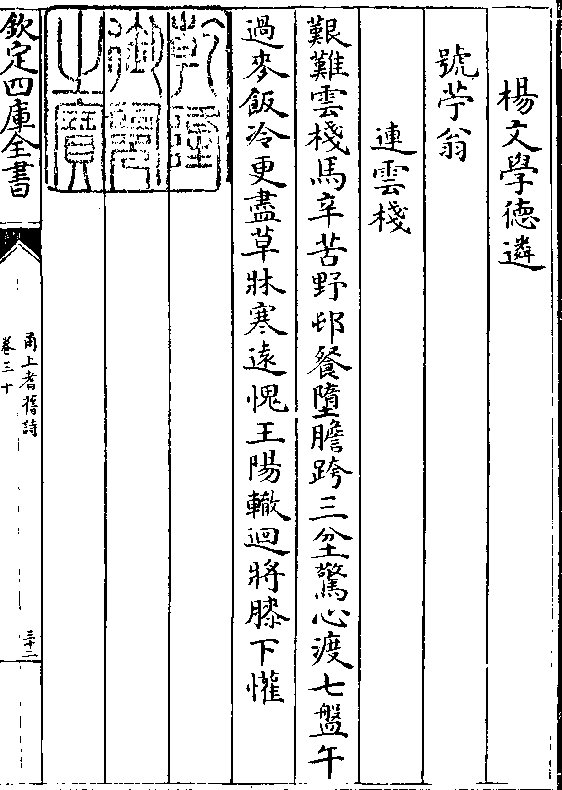 楊文學德遴
號苧翁
連雲棧
艱難雲棧馬辛苦野邨餐墮膽跨三坌驚心渡七盤午
過麥飯冷更盡草牀寒遠愧王陽轍迴將膝下懽
乾隆
御覽
之寶
欽定四庫全書
甬上耆舊詩
卷三十
三十二